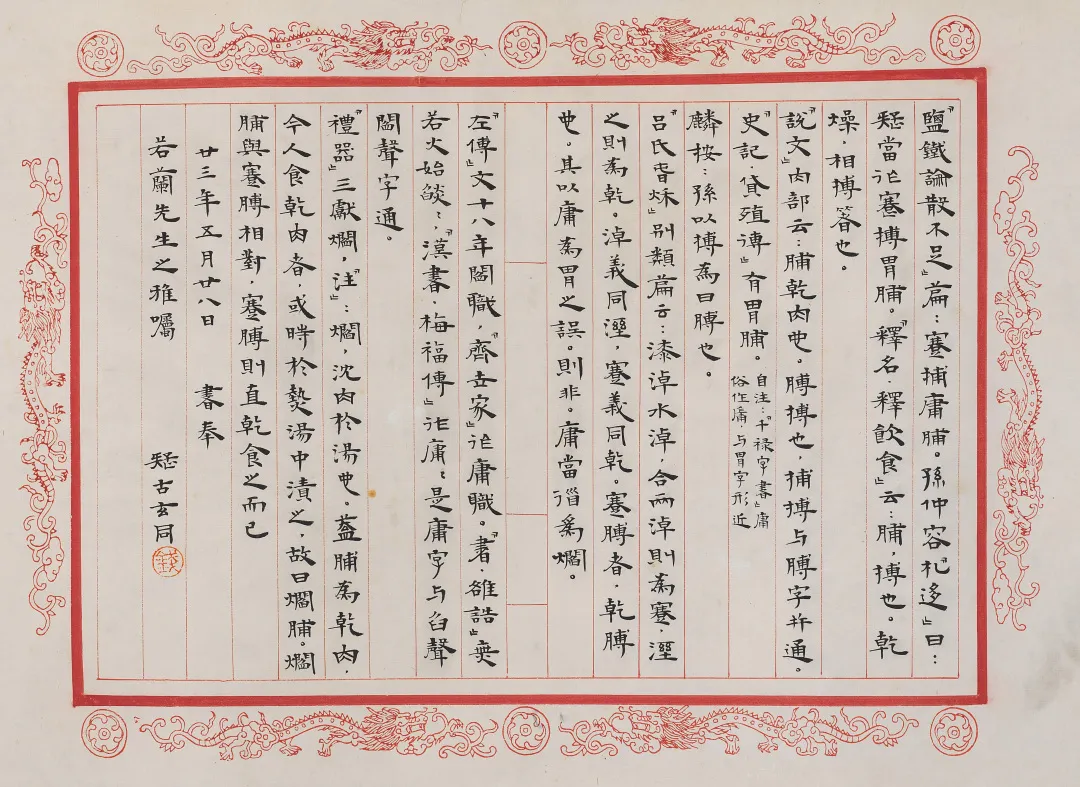 『鹽鐵論散不足』篇：蹇捕庸脯。孫仲容『札迻』曰：
疑當作蹇搏胃脯。『釋名·釋飲食』云：脯，搏也。乾
燥，相搏箸也。
『說文』肉部云：脯乾肉也。膊搏也，捕搏与膊字並通。
『史記·貨殖傳』有胃脯。自注：『干祿字書』庸
俗作𦟛与胃字形近
麟按：孫以搏為曰膊也。
『呂氏春秋』別類篇云：漆淖水淖，合兩淖則為蹇，溼
之則為乾。淖義同溼，蹇義同乾。蹇膊者，乾膊
也。其以庸為胃之誤。則非。庸當𢓜為爓。
『左傳』文十八年閻職，『齊世家』作庸職。『書·雒誥』無
若火始燄燄，『漢書·梅福傳』作庸庸是庸字与臽聲
閻聲字通。
『禮器』三獻爓，『注』：爓，沈肉於湯也。蓋脯為乾肉，
今人食乾肉者，或時於𤍠湯中漬之，故曰爓脯。爓
脯與蹇膊相對，蹇膊則直乾食之而已
廿三年五月廿八日　書奉
若蘭先生之雅囑
疑古玄同
錢